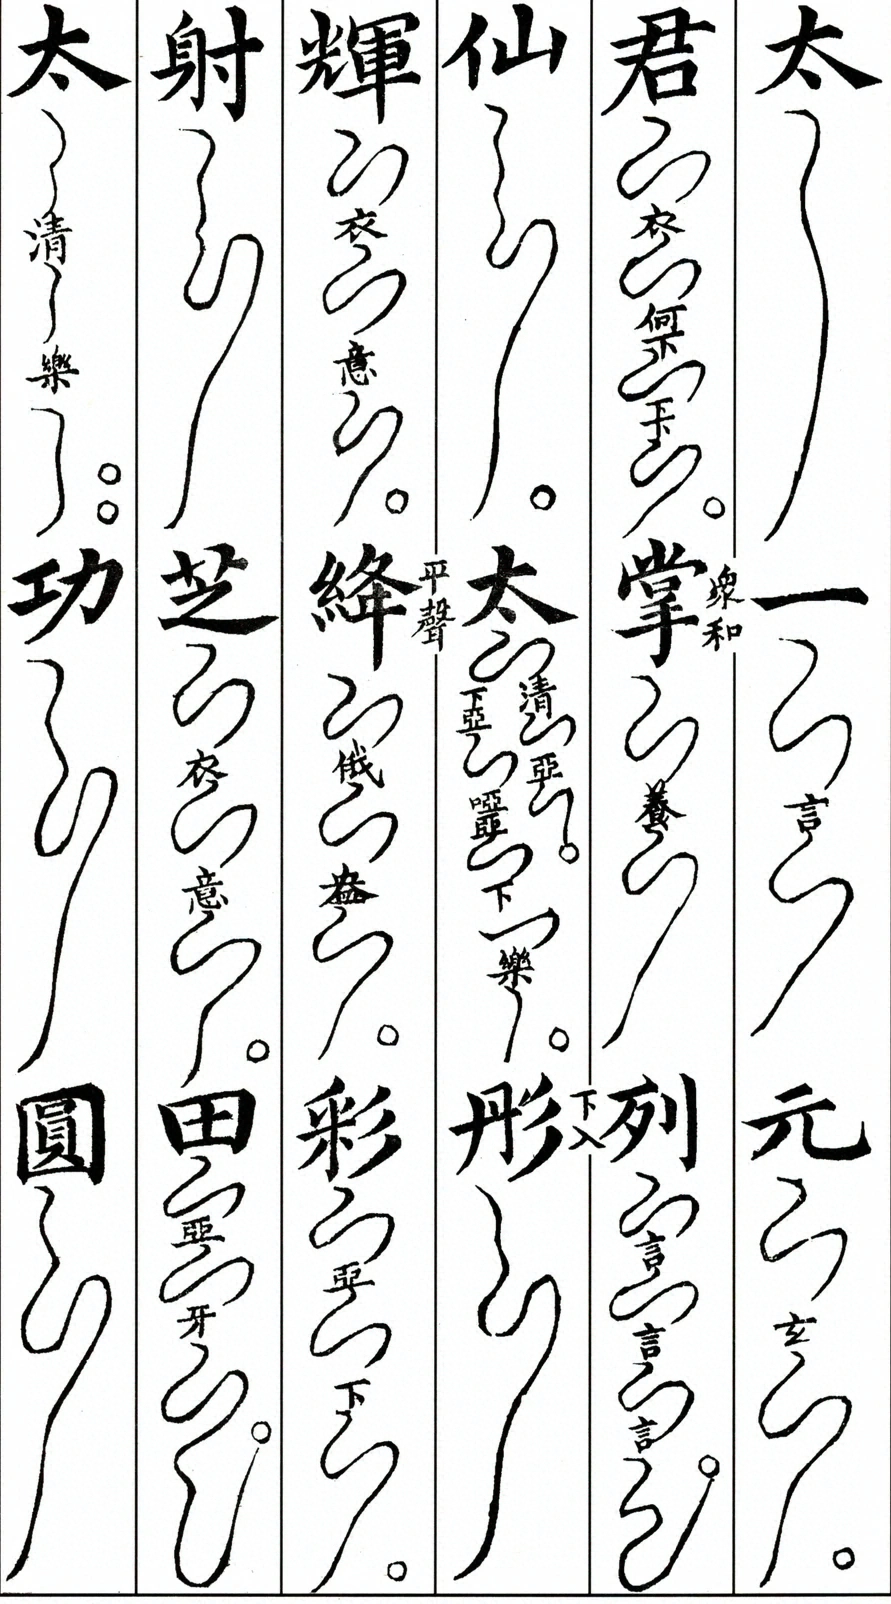 太一言元玄
君衣何下掌眾和養列言言言
仙太清亞下亞下樂彤下入
輝衣意絳平聲俄盎彩亞下
射芝衣意田亞牙
太清樂功圓